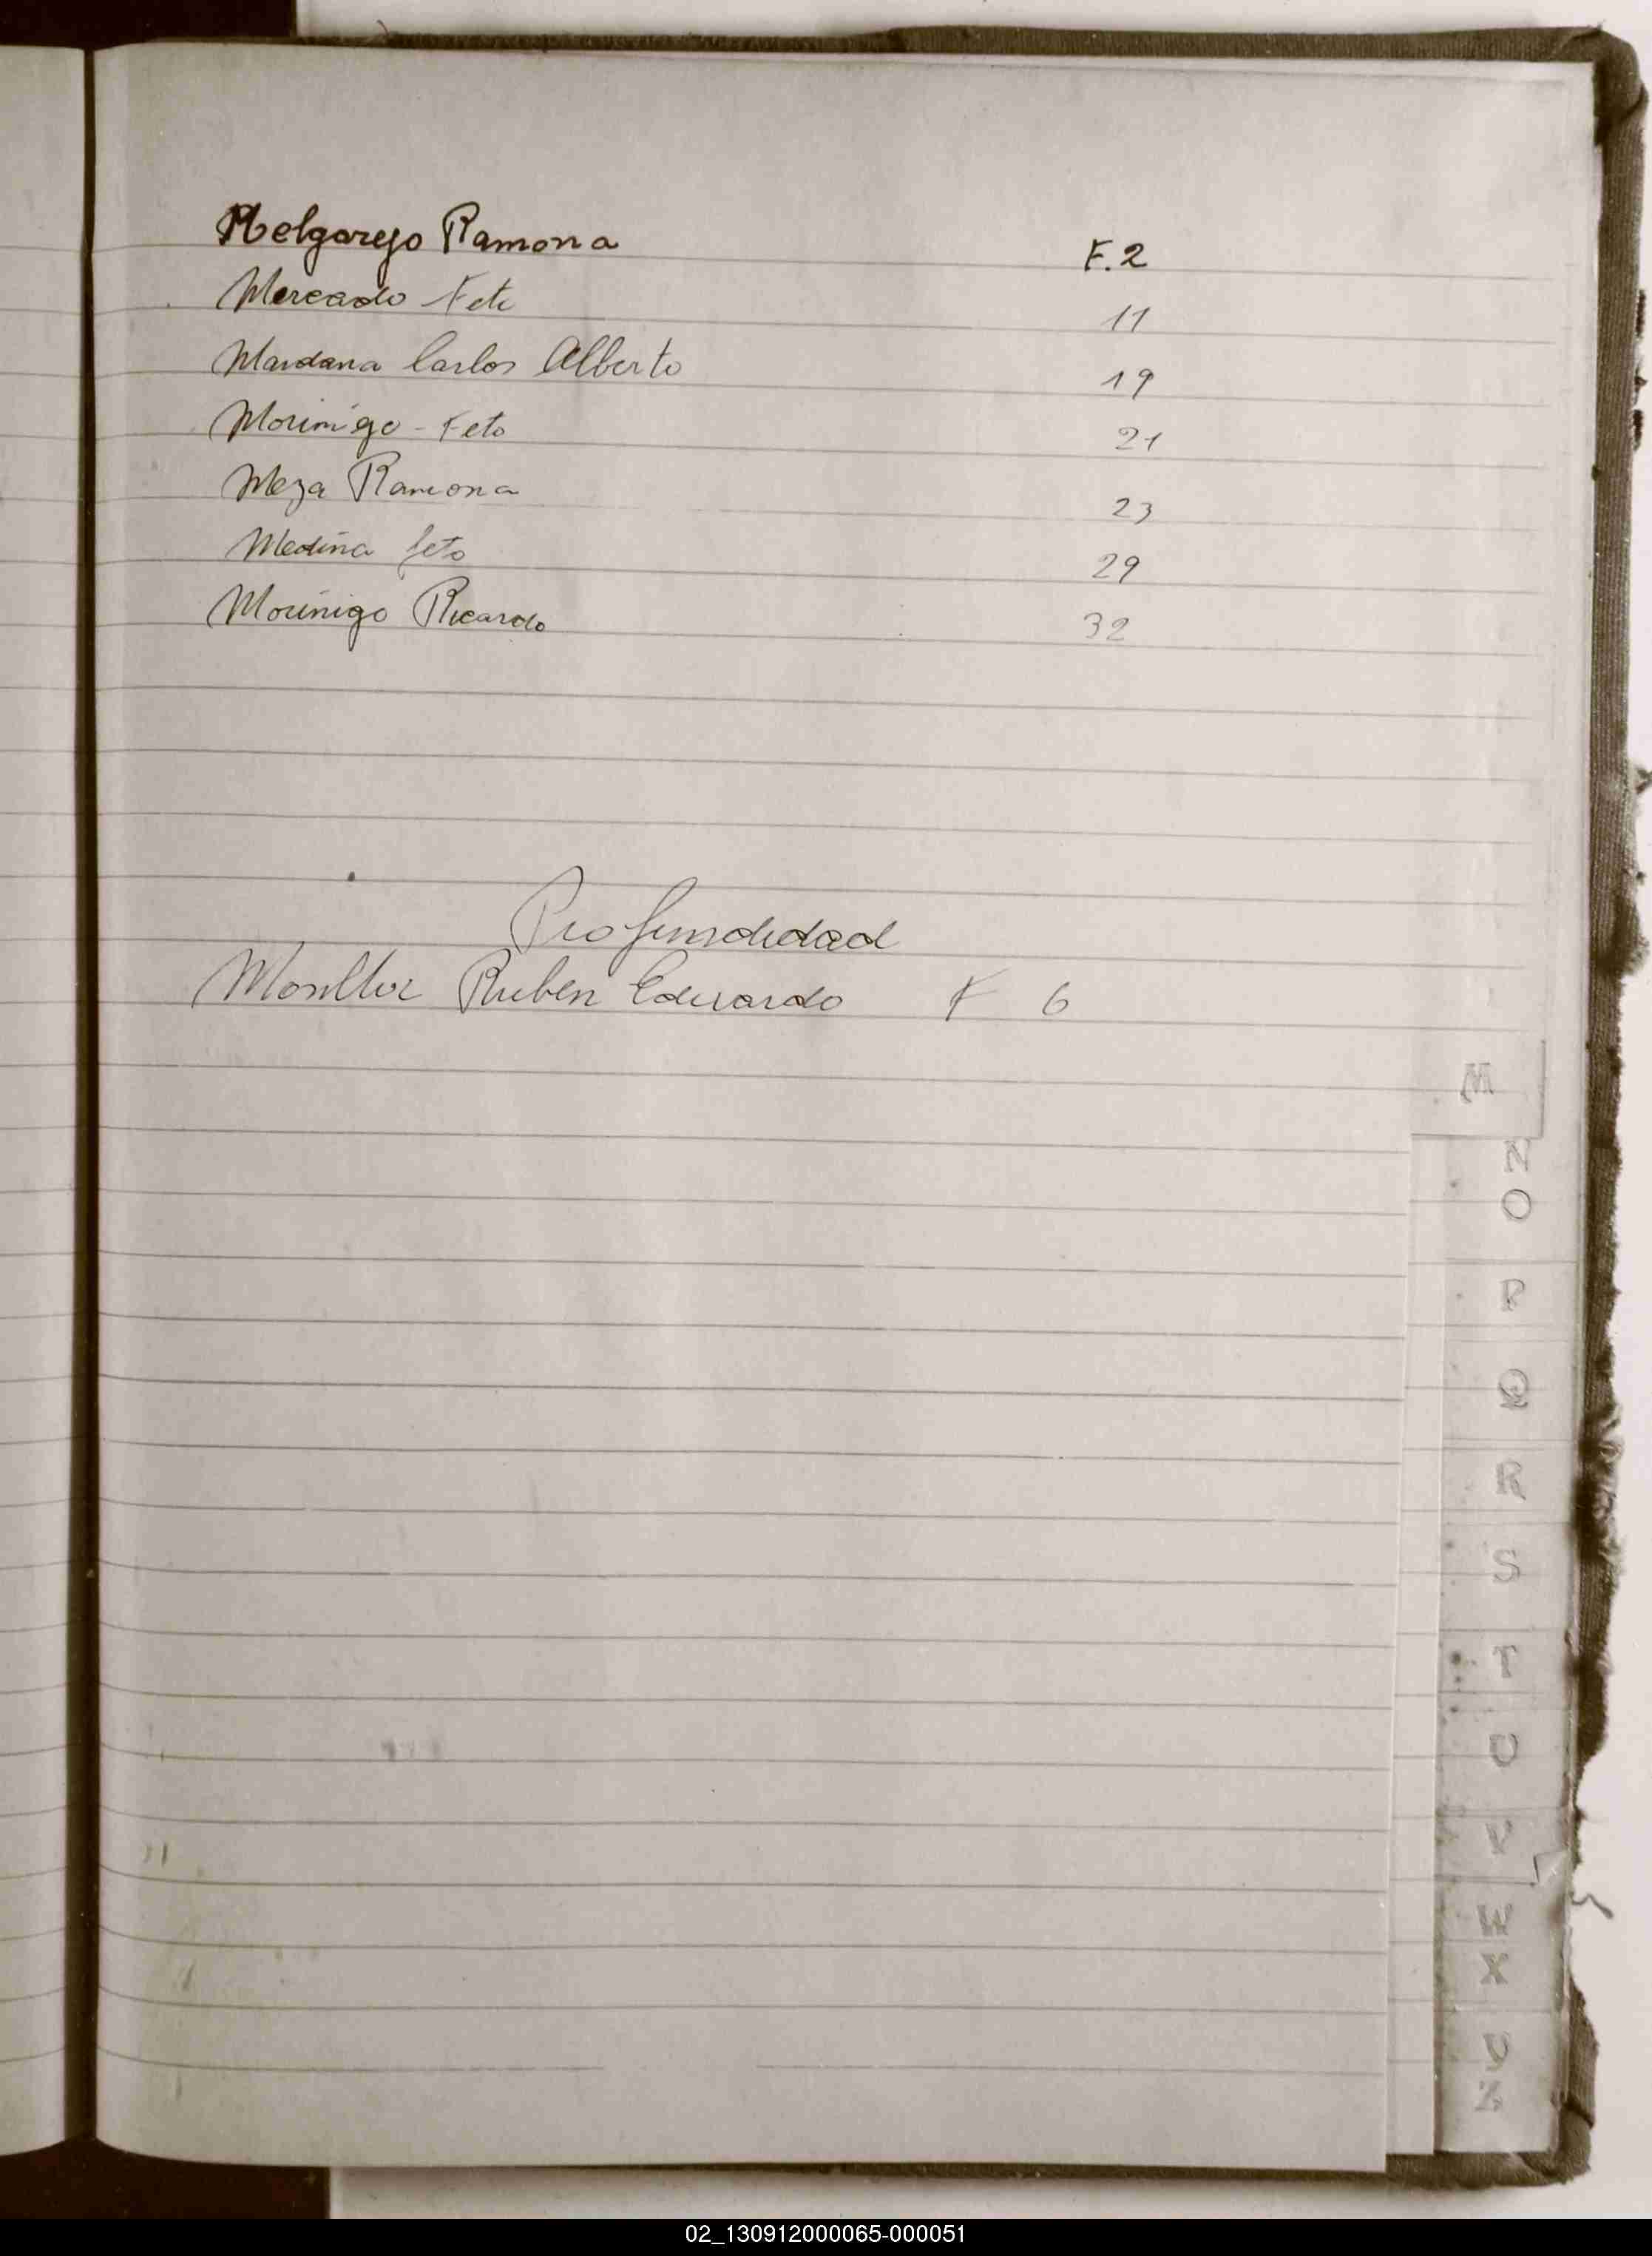 Melgarejo Ramona F. 2
Mercado Feto 11
Mardana Carlos Alberto 19
Moriñigo - Feto 21
Meza Ramona 23
Medina feto 29
Moriñigo Ricardo 32
Profundidad
Monllor Ruben Eduardo F 6
M
N
O
P
Q
R
S
T
U
V
W
X
Y
Z
02_130912000065-000051